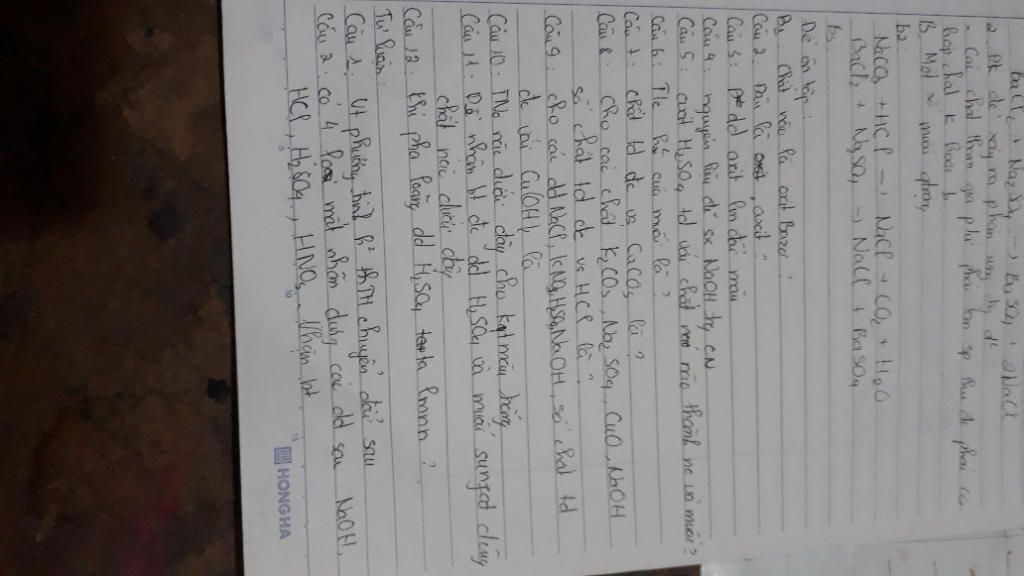 BaCl2 + Na2SO4 -> BaSO4 + 2NaCl
2. ĐK để xảy ra phản ứng tđ đổi
- Các chất tham gia phải tan sp thu đc phải có
hợp chất k hoặc ↓
B. Một số muối qtrọng
b2:
NaCO3 + HCl -> NaCl + CO2 + H2O
BaCl2 + N2SO4 -> NaCl + BaSO4
b3
Đề ôn tập:
B1: Chất nào là oxit Bazơ?
Câu 2: Đâu là axit?
Câu 3: dd axit làm đổi màu
Câu 4: nguyên liệu để sx NaOH trg CN
Câu 5: axit H2SO4 td với chất nào thành nc và muối?
Câu 6: T/c hh của muối là?
Câu 7: chất td đc vs CaCO3 là?
Câu 8: cho các chất K2CO3, Na2SO4, CuO, NaOH
số chất td đc vs HCl là?
Câu 9: cho các dd NaCl, KNO3, H2SO4, NaOH, số chất td
đc với Cu(OH)2 là
Câu 10: TN nào dưới đây cho kq màu trắng
Câu 11: Để nhận bt đc dd H2SO4 và muối sunfat dùng
chất nào dưới đây
Câu 12: Khi pha loãng dd H2SO4 ta lmntn?
Tự luận:
Câu 1: Vt phương trình hh thTH chuyển đổi sau
Câu 2: có 4 lọ mất nhãn đựng các dd sau NaOH,
HCl, H2SO4, HNO3. Nhận bt
5
10
15
HONGHA